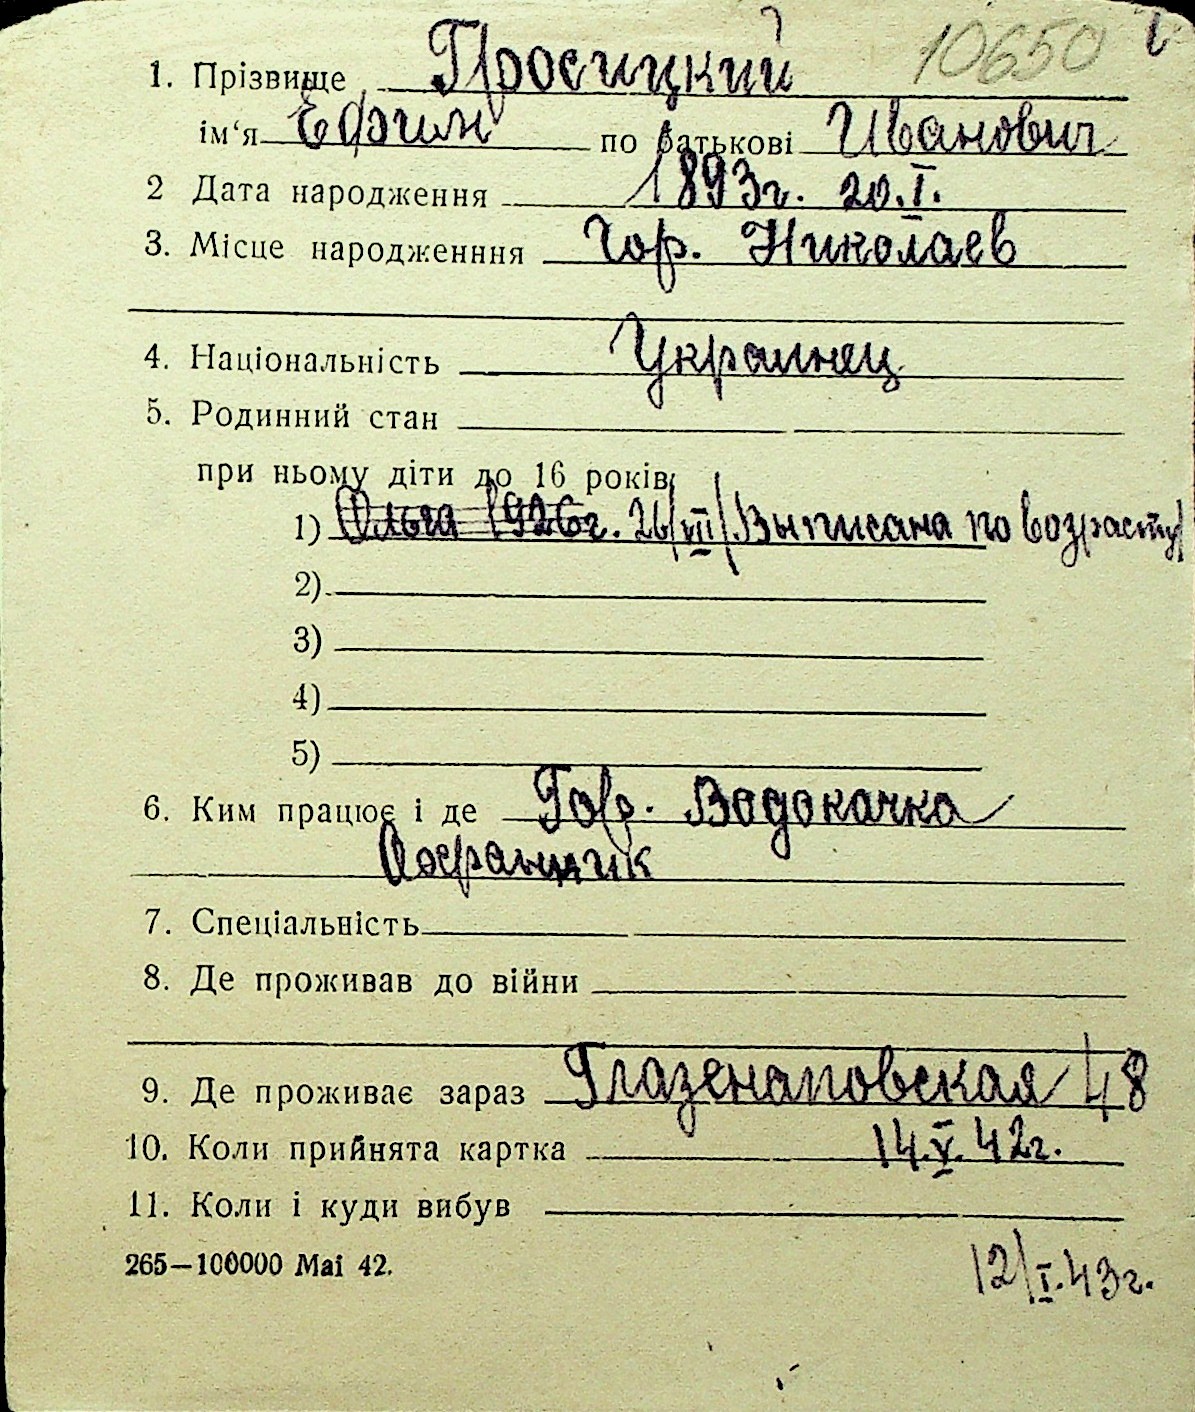 10650
1. Прізвище Просицкий
ім‘я Ефим по батькові Иванович
2 Дата народження 1893г. 20.I.
3. Місце народженння Гор. Николаев
4. Національність Украинец
5. Родинний стан
при ньому діти до 16 років:
1) Ольга 1926г. 26/VII/Выписана по возрасту/
2)
3)
4)
5)
6. Ким працює і де Гор. Водокачка
Охранщик
7. Спеціальність
8. Де проживав до війни
9. Де проживає зараз Глазенаповская 48
10. Коли прийнята картка 14.V.42г.
11. Коли і куди вибув
265—100000 Mai 42.
12/I.43г.